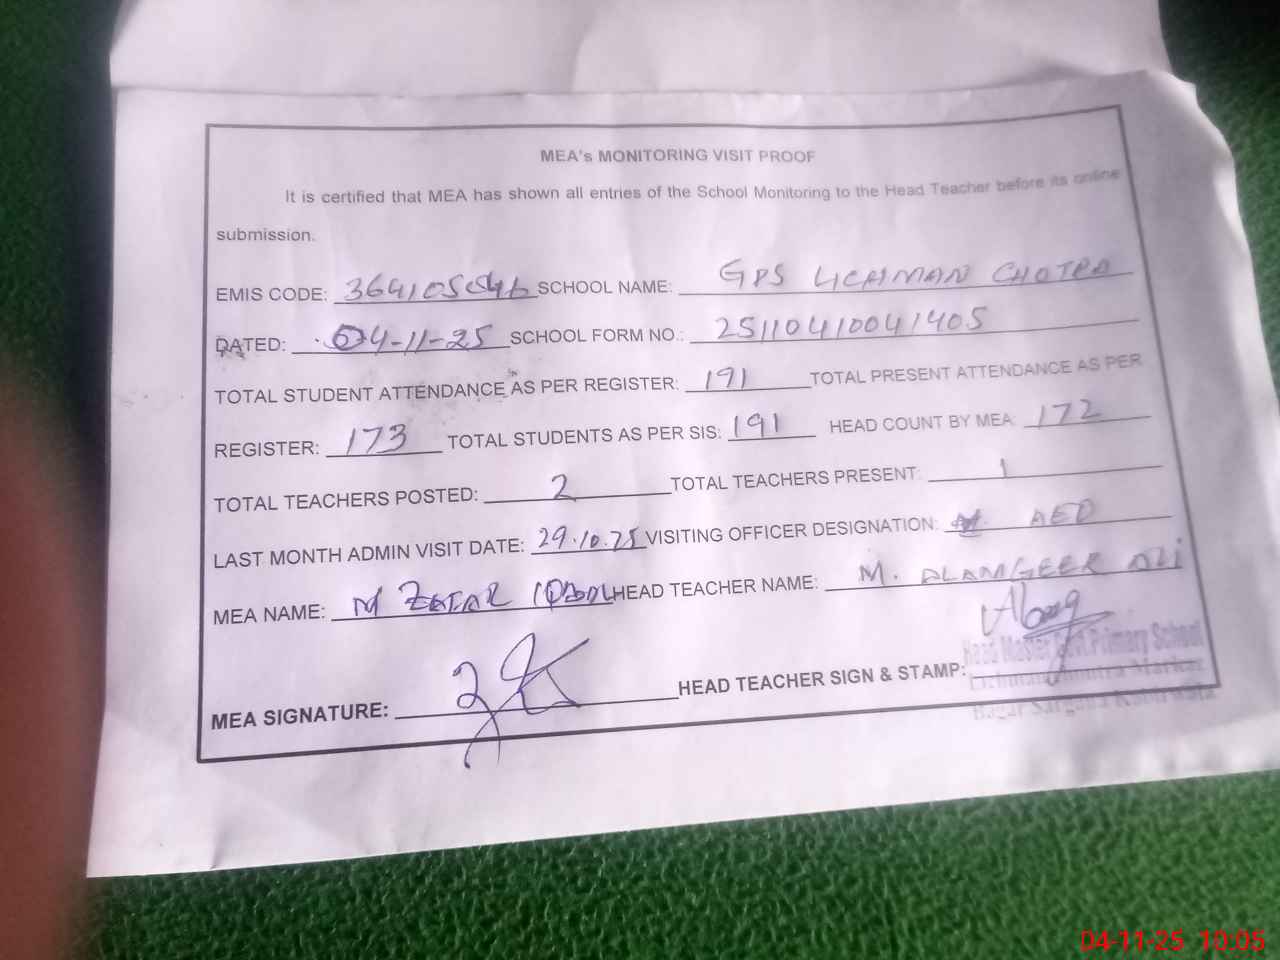 MEA's MONITORING VISIT PROOF
It is certified that MEA has shown all entries of the School Monitoring to the Head Teacher before its online
submission.
EMIS CODE: SCHOOL NAME: GPS LICHMAN CHOTRA
DATED: 04-11-25 SCHOOL FORM NO.: 25110410041405
TOTAL STUDENT ATTENDANCE AS PER REGISTER: 191 TOTAL PRESENT ATTENDANCE AS PER
REGISTER: 173 TOTAL STUDENTS AS PER SIS: 191 HEAD COUNT BY MEA: 172
TOTAL TEACHERS POSTED: 2 TOTAL TEACHERS PRESENT: 1
LAST MONTH ADMIN VISIT DATE: 29.10.25 VISITING OFFICER DESIGNATION: AEO
MEA NAME: M ZAFAR IQBAL HEAD TEACHER NAME: M. ALAMGEER ALI
MEA SIGNATURE: HEAD TEACHER SIGN & STAMP:
Head Master Govt.Primary School
04-11-25 10:05